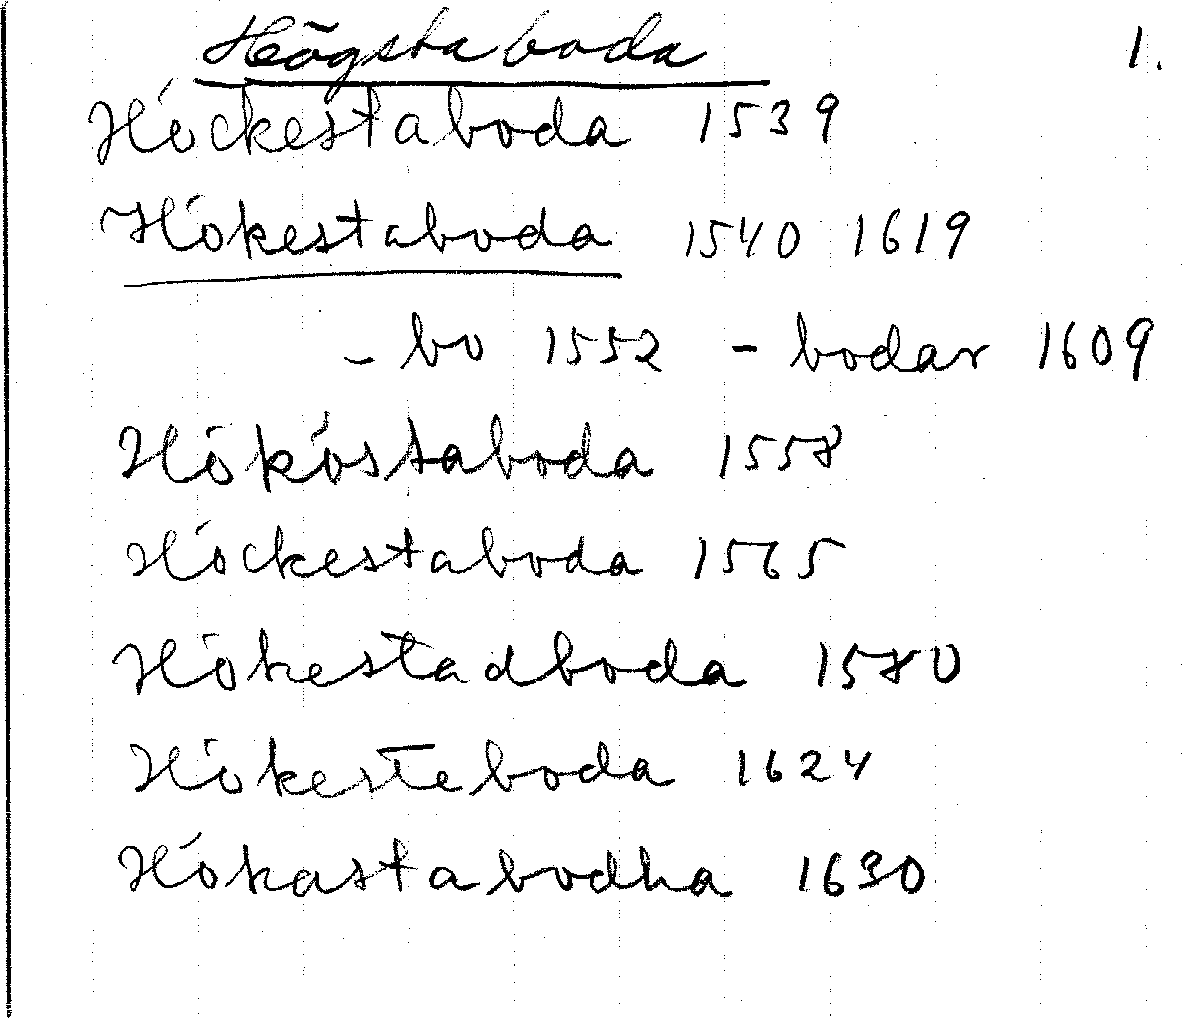 Högstaboda 1.
Höckestaboda 1539
Hökestaboda 1540 1619
- bo 1552 - bodar 1609
Hököstaboda 1558
Höckestaboda 1565
Hökestadboda 1580
Hökesteboda 1624
Hökastabodha 1630